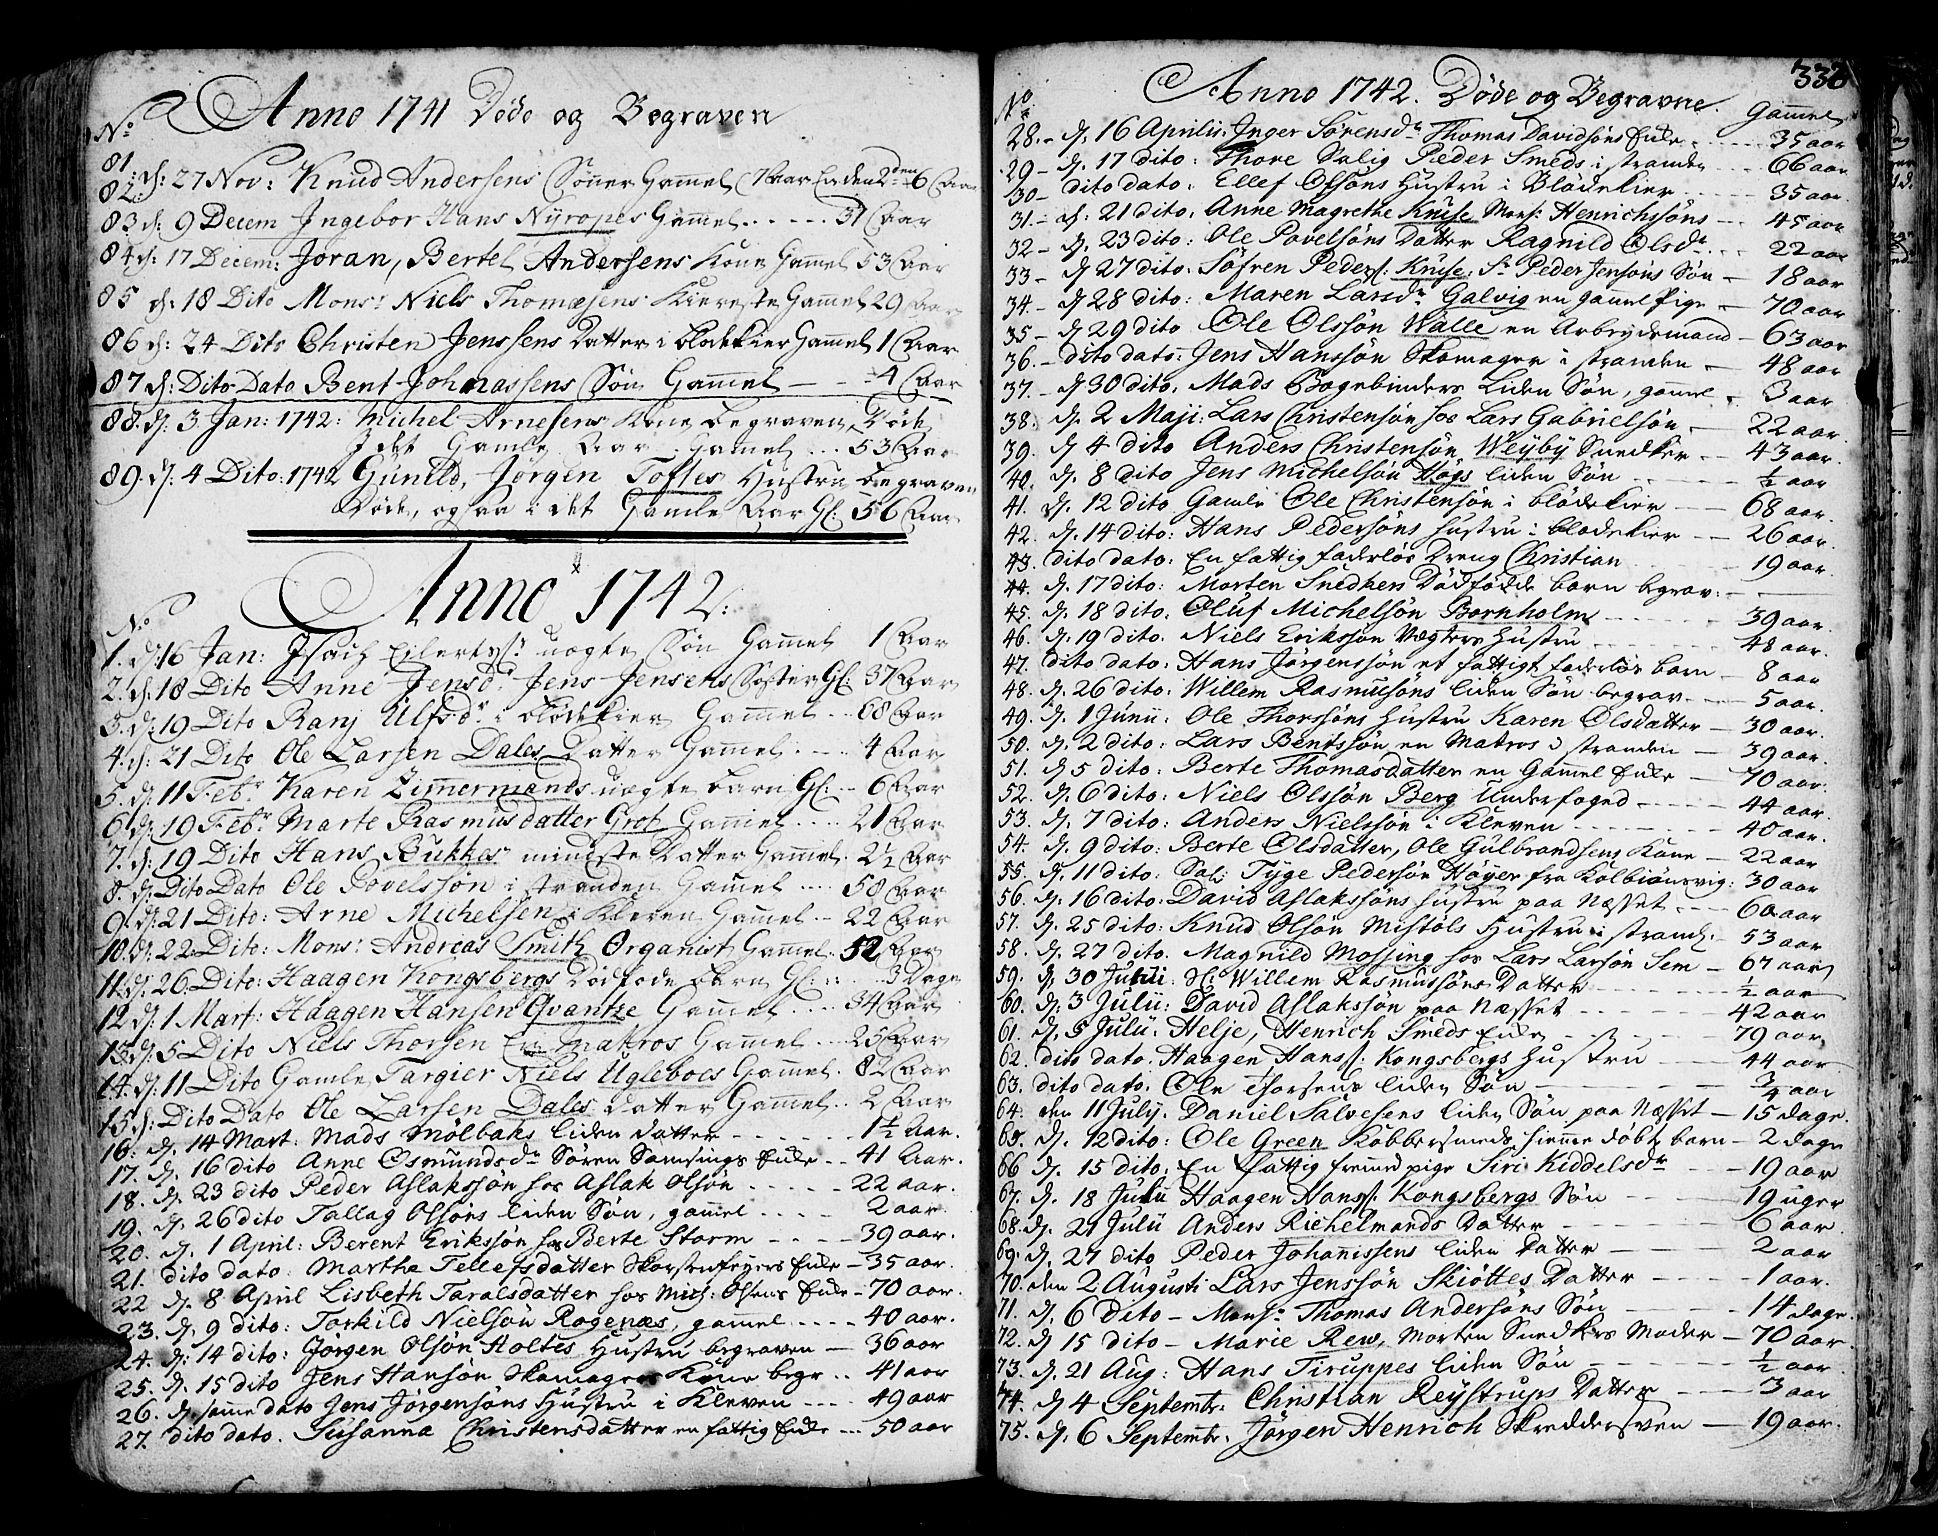 Anno 1741 Döde og Begraven
No
81.
82. d: 27 Nov: Knud Andersens Sönner Gamel 7 Aar En den 2den 6 Aar
83 d: 9 Decem Ingebor Hans Nyropes Gamel ..... 31 Aar
84 d: 17 Decem: Joran, Bertel Andersens Kone Gamel 53 Aar
85 d: 18 Dito Mons: Niels Thomæsens Kiereste Gamel 29 Aar
86 d: 24 Dito Christen Jenssens Datter i blödekier Gamel 1 Aar
87 d: Dito Dato Bent Johnassens Sön Gamel - - 4 Aar
88. d: 3 Jan: 1742: Michel Arnesens Kone begraven, Döde
I det Gamle Aar. Gamel ... 53 Aar
89. d: 4 Dito: 1742 Gunild, Jörgen Toftes Hustru begraven
Döde, og saa i det Gamle Aar Gl: 56 Aar
Anno 1742:
No
1. d: 16 Jan: Isach Eilertss: uegte Sön Gamel 1 Aar
2. d: 18 Dito Anne Jensd: Jens Jensens Söster Gl: 37 Aar
3. d: 19 Dito Ranj Ulfsdr i blödekier Gamel .. 68 Aar
4. d: 21 Dito Ole Larsen Dales Datter Gamel .... 4 Aar
5. d: 11 Febr. Karen Zimermands uegte barn Gl: .. 6 Aar
6 d: 19 Febr. Marte Rasmusdatter Grot Gamel .... 21 Aar
7. d: 19 Dito Hans Bukkes mindste Datter Gamel. 2½ Aar
8. d: Dito Dato Ole Povelssön i stranden Gamel .... 58 Aar
9. d: 21 Dito: Arne Michelsen i Kleven Gamel .. 22 Aar
10. d: 22 Dito: Mons: Andreas Smith Organist Gamel. 52 Aar
11. d: 26 Dito: Haagen Kongsbergs Dödföde Barn Gl: .. 3 Dage
12. d: 1 Mart: Haagen Hansen Qvantze Gamel .... 34 Aar
13. d: 5 Dito Niels Thorsen En Matros Gamel ... 25 Aar
14. d: 11 Dito Gamle Targier Niels Ugleboes Gamel. 82 Aar
15 d: Dito Dato Ole Larsen Dales Datter Gamel .. 2 Aar
16. d. 14 Mart: Mads Mölbaks liden datter - - - - - 1½ Aar.
17. d. 16 dito Anne Osmundsdr Sören Samsings Enke .. 41 Aar.
18. d. 23 dito Peder Aslakssön hos Aslak Olsön - - - - - 22 aar.
19. d. 26 dito Tallag Olsöns liden Sön, gamel - - - - 2 aar.
20. d. 1 April: Berent Erikssön hos Berte Storm - - - - 39 aar.
21. dito dato: Martha Tellefsdatter Skorstenfeyers Enke - 35 aar.
22 d. 8 April Lisbeth Taralsdatter hos Mich: Olsens Enke - 70 aar.
23. d. 9 dito: Torkild Nielsön Rogenæs, gamel - - - - 40 aar.
24. d: 14 dito: Jörgen Olsön Holtes Hustru begraven - 36 aar
25. d. 15 dito Jens Hansön Skomagers Kone begr .. 41 aar
26. d. samme dato Jens Jörgensöns Hustru i Kleven - - - 49 aar
27. dito dato. Susanna Christensdatter en fattig Enke ... 50 aar
Anno 1742. Döde og Begravne.
No
Gamel
28. - d. 16 Aprilii: Inger Sörensdr Thomas Davidsöns Enke ..... 35 aar
29 - d. 17 dito: Thore Salig Peder Smeds i stranden ... 66 aar
30 - dito dato: Ellef Olsöns Hustru i Blödekier ..... 35 aar.
31. - d: 21 dito: Anne Magrethe Kruse Mons: Henrichssöns --- 45 aar
32 - d. 23 dito: Ole Povelsöns Datter Ragnild Olsdr .... 22 aar
33 - d 27 dito: Söfren Peders: Kruse: Sl Peder Jensöns Sön - 18 aar
34. - d 28 dito: Maren Larsdr Galvig en gamel Pige - 70 aar
35 - d 29 dito Ole Olssön Walle en Arbeydsmand - 63 aar
36. - dito dato: Jens Hanssön Skomager i stranden - 48 aar
37. - d 30 dito. Mads Bogebinders Liden Sön, gamel - 3 aar
38. d. 2 Maji: Lars Christensön hos Lars Gabrielsön - 22 aar.
39. d 4 dito Anders Christensön Weyby Snedker -- 43 aar.
40. d. 8 dito Jens Michelsön Høgs liden Sön ------- ½ aar
41. d. 12 dito Gamle Ole Christensön i blödekier --- 68 aar.
42. d. 14 dito: Hans Pedersöns Hustru i blödekier -- 26 aar.
43. dito dato: En fattig faderlös Dreng Christian ------ 19 aar.
44. d. 17 dito: Morten Snedkers Dödfödde barn begrav: - -
45. d. 18 dito. Oluf Michelsön Bornholm ------- 39 aar.
46. d. 19 dito. Niels Erikssön Vægters Hustru ------- 48 aar.
47. dito dato: Hans Jörgenssön et fattigt faderlös barn - 8 aar
48. d. 26 dito: Willem Rasmusöns liden Sön begrav ----- 5 aar.
49. d. 1 Junii: Ole Thorssöns Hustru Karen Olsdatter - 30 aar.
50. d. 2 dito: Lars Bentssön en Matros i stranden - 39 aar.
51. d 5 dito: Berte Thomasdatter en Gamel Enke - 70 aar.
52. d. 6 dito: Niels Olssön Berg Underfoged ----- 44 aar.
53. d. 7 dito: Anders Nielssön i Kleven -------- 40 aar.
54. d. 9 dito: Berte Olsdatter, Ole Gulbrandsens Kone - 22 aar
55. d. 11 dito: Sal: Tyge Pedersön Höyer fra Kolbiönsvig: 30 aar
56. d: 16 dito: David Aslakssöns Hustru paa Næsset ---- 60 aar
57. d. 25 dito: Knud Olsön Mistöls Hustru i strand: - 53 aar
58. d. 27 dito. Magnild Mossing hos Lars Larsön Sem - 67 aar
59. d. 30 Junii: Sl: Willem Rasmussöns Datter ------ ½ aar
60. d. 3 Julii: David Aslakssön paa Næsset ------ 42 aar
61. d. 5 Julii. Helje, Henrich Smeds Enke ------ 79 aar.
62. dito dato: Haagen Hanss: Kongsbergs Hustru ---- 44 aar
63. dito dato. Ole Thorsens liden Sön -------- ¾ aar
64. den 11 July. Daniel Salvesens liden Sön paa Næsset - 15 dage.
65. d. 12 dito: Ole Green Kobbersmeds hiemme döbt barn - 2 dage
66 d. 15 dito: En fattig fremmed pige Siri Kiddelsdr --- 19 aar
67. d. 18 Julii Haagen Hanss: Kongsbergs Sön ---- 19 uger
68. d. 21 Julii Anders Richelmands Datter ------ 6 aar
69. d. 27 dito Peder Johanissens liden Datter ---- 2 aar
70. den 2 Augusti Lars Jenssön Skiöttes Datter ---- 1 aar.
71. d. 6 Dito - Monsr. Thomas Andersöns Sön ----- 14 dage.
72. d 15 dito - Marie Rew, Morten Snedkers Moder - 70 aar
73. d. 21 Aug: Hans Tiruppes liden Sön ------- ½ aar
74. d 4 Septembr. Christian Reystrups Datter ---- 3 aar
75. d. 6 Septembr. Jörgen Henrich Skreddersven -- 19 aar.